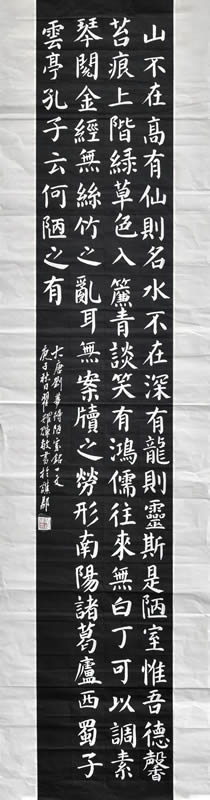 山不在高有仙則名水不在深有龍則靈斯是陋室惟吾德馨
苔痕上階綠草色入簾青談笑有鴻儒往來無白丁可以調素
琴閱金經無絲竹之亂耳無案牘之勞形南陽諸葛廬西蜀子
雲亭孔子云何陋之有
大唐劉夢得陋室銘一文
庚子秋日翟耀敏書於譙郡